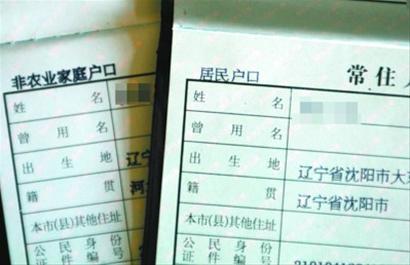 非农业家庭户口
姓 名
曾 用 名
出 生 地 辽宁
籍 贯
本市(县)其他住址
公 民 身 份
证 件 编 号
居民户口 常 住
姓 名
曾 用 名
出 生 地 辽宁省沈阳市大
籍 贯 辽宁省沈阳市
本市(县)其他住址
公 民 身 份
证 件 编 号